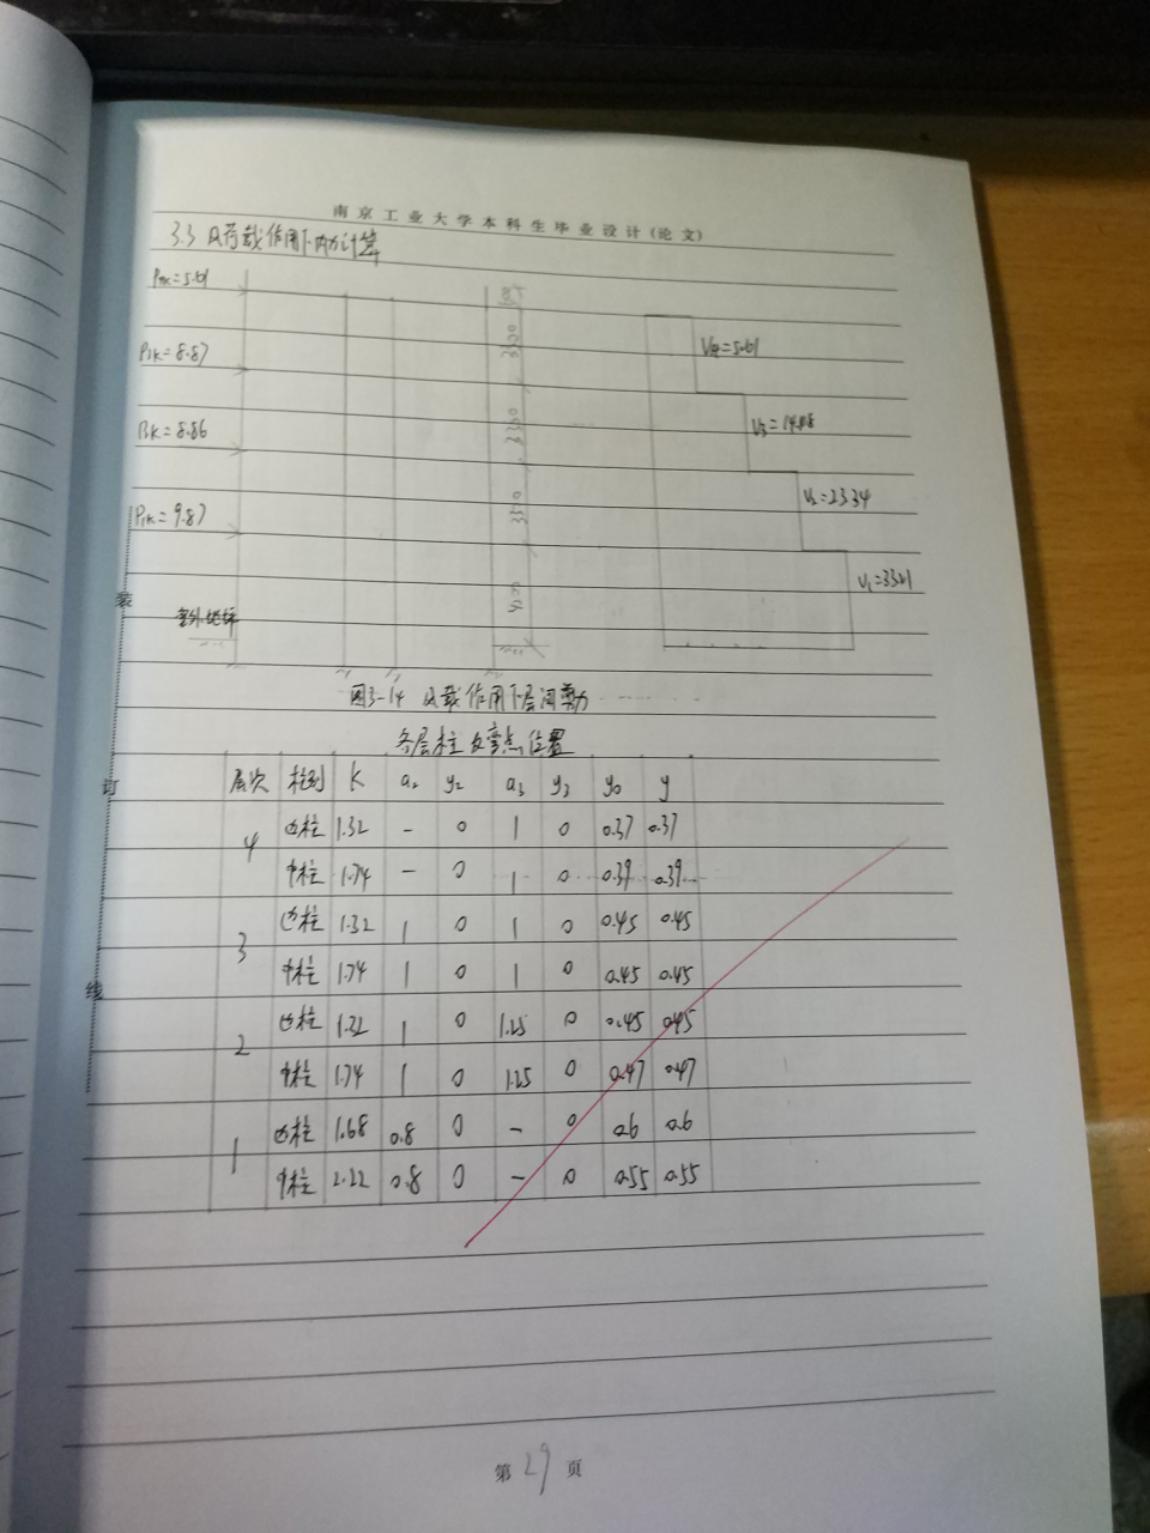 南京工业大学本科生毕业设计(论文)
3.3 风荷载作用下内力计算
P4k=5.61
85
3300
V4=5.61
P3k=8.87
3300
V3=14.48
P2k=8.86
3300
V2=23.34
P1k=9.87
V1=33.21
室外地坪
图3-14 风载作用下层间剪力
各层柱反弯点位置
层次 柱别 K a2 y2 a3 y3 y0 y
4 边柱 1.32 - 0 1 0 0.37 0.37
中柱 1.74 - 0 1 0 0.39 0.39
3 边柱 1.32 1 0 1 0 0.45 0.45
中柱 1.74 1 0 1 0 0.45 0.45
2 边柱 1.32 1 0 1.25 0 0.45 0.45
中柱 1.74 1 0 1.25 0 0.47 0.47
1 边柱 1.68 0.8 0 - 0 0.6 0.6
中柱 2.22 0.8 0 - 0 0.55 0.55
装
订
线
第 29 页